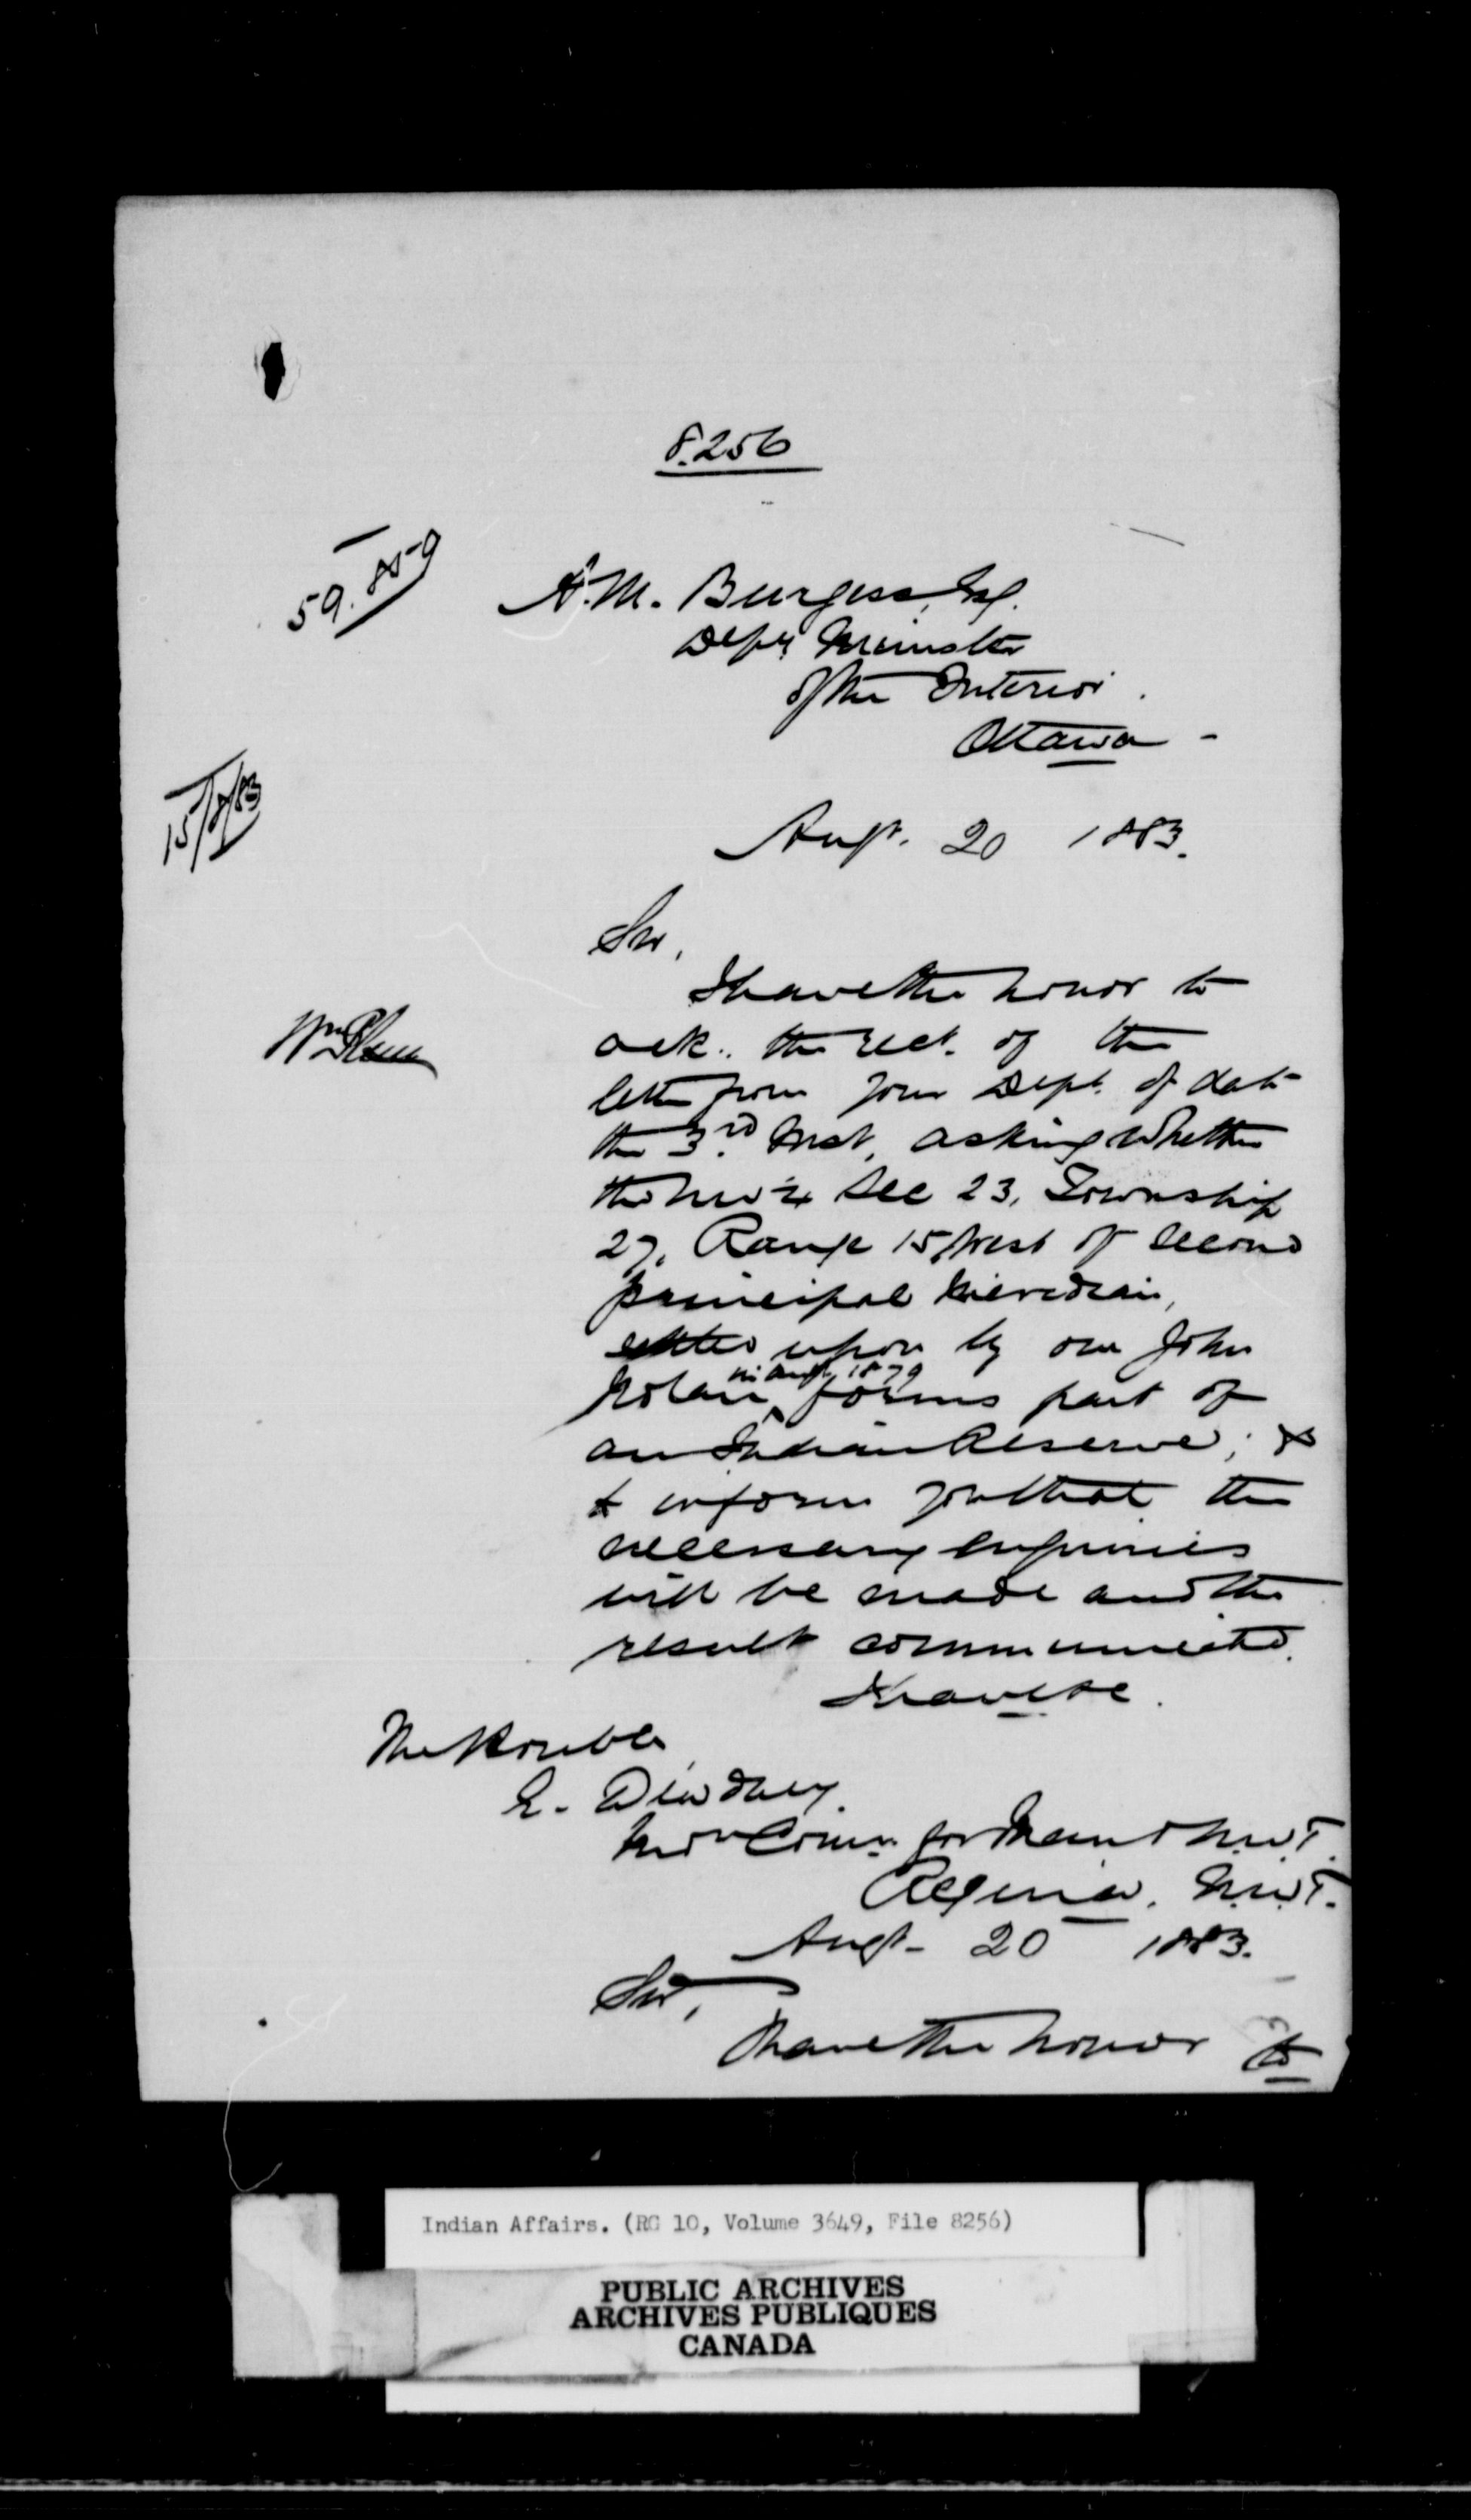 8.256
59.859
A. M. Burgess, Esq.
Depy Minister
of the Interior.
Ottawa -
15/8/83
Augt. 20 1883.
Sir,
I have the honor to
ack. the rect. of the
letter from your Dept. of date
the 3rd Inst, asking whether
the NW 1/4 Sec 23, Township
27, Range 15, West of Second
principal Meridian,
settled upon by one John
in Augt. 1879
Nolan forms part of
an Indian Reserve; &
to inform you that the
necessary enquiries
will be made and the
result communicated.
I have &c.
The Honble
E. Dewdney.
Indn Comr. for Man & N.W.T.
Regina. N.W.T.
Augt- 20 1883.
Sir,
I have the honor to
Indian Affairs. (RG 10, Volume 3649, File 8256)
PUBLIC ARCHIVES
ARCHIVES PUBLIQUES
CANADA